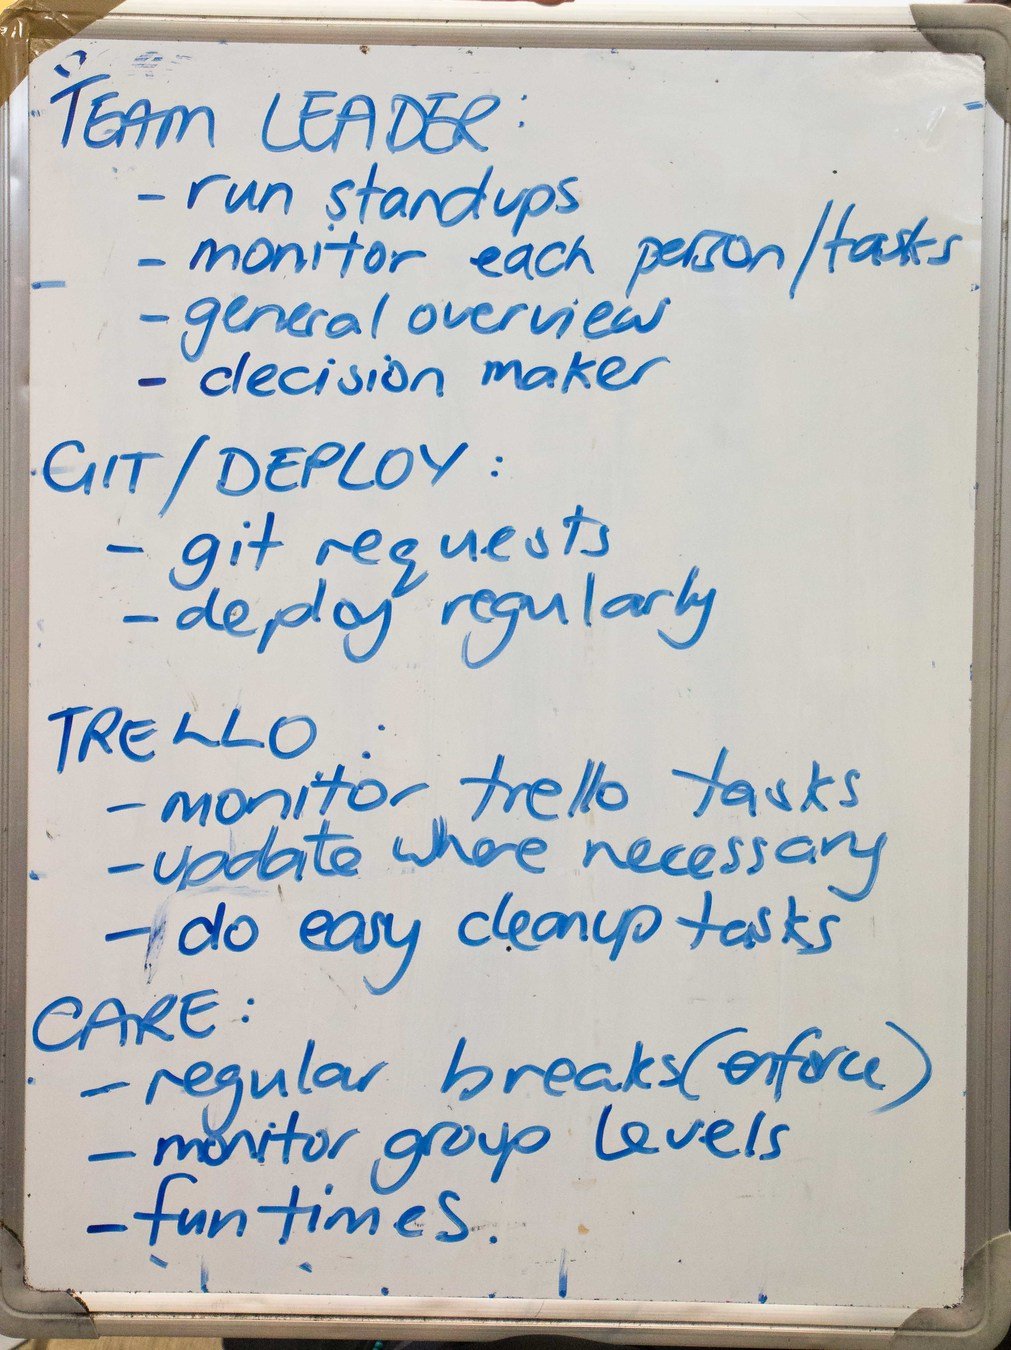 TEAM LEADER:
- run standups
- monitor each person/tasks
- general overview
- decision maker
GIT/DEPLOY:
- git requests
- deploy regularly
TRELLO:
- monitor trello tasks
- update where necessary
- do easy cleanup tasks
CARE:
- regular breaks (enforce)
- monitor group levels
- fun times.